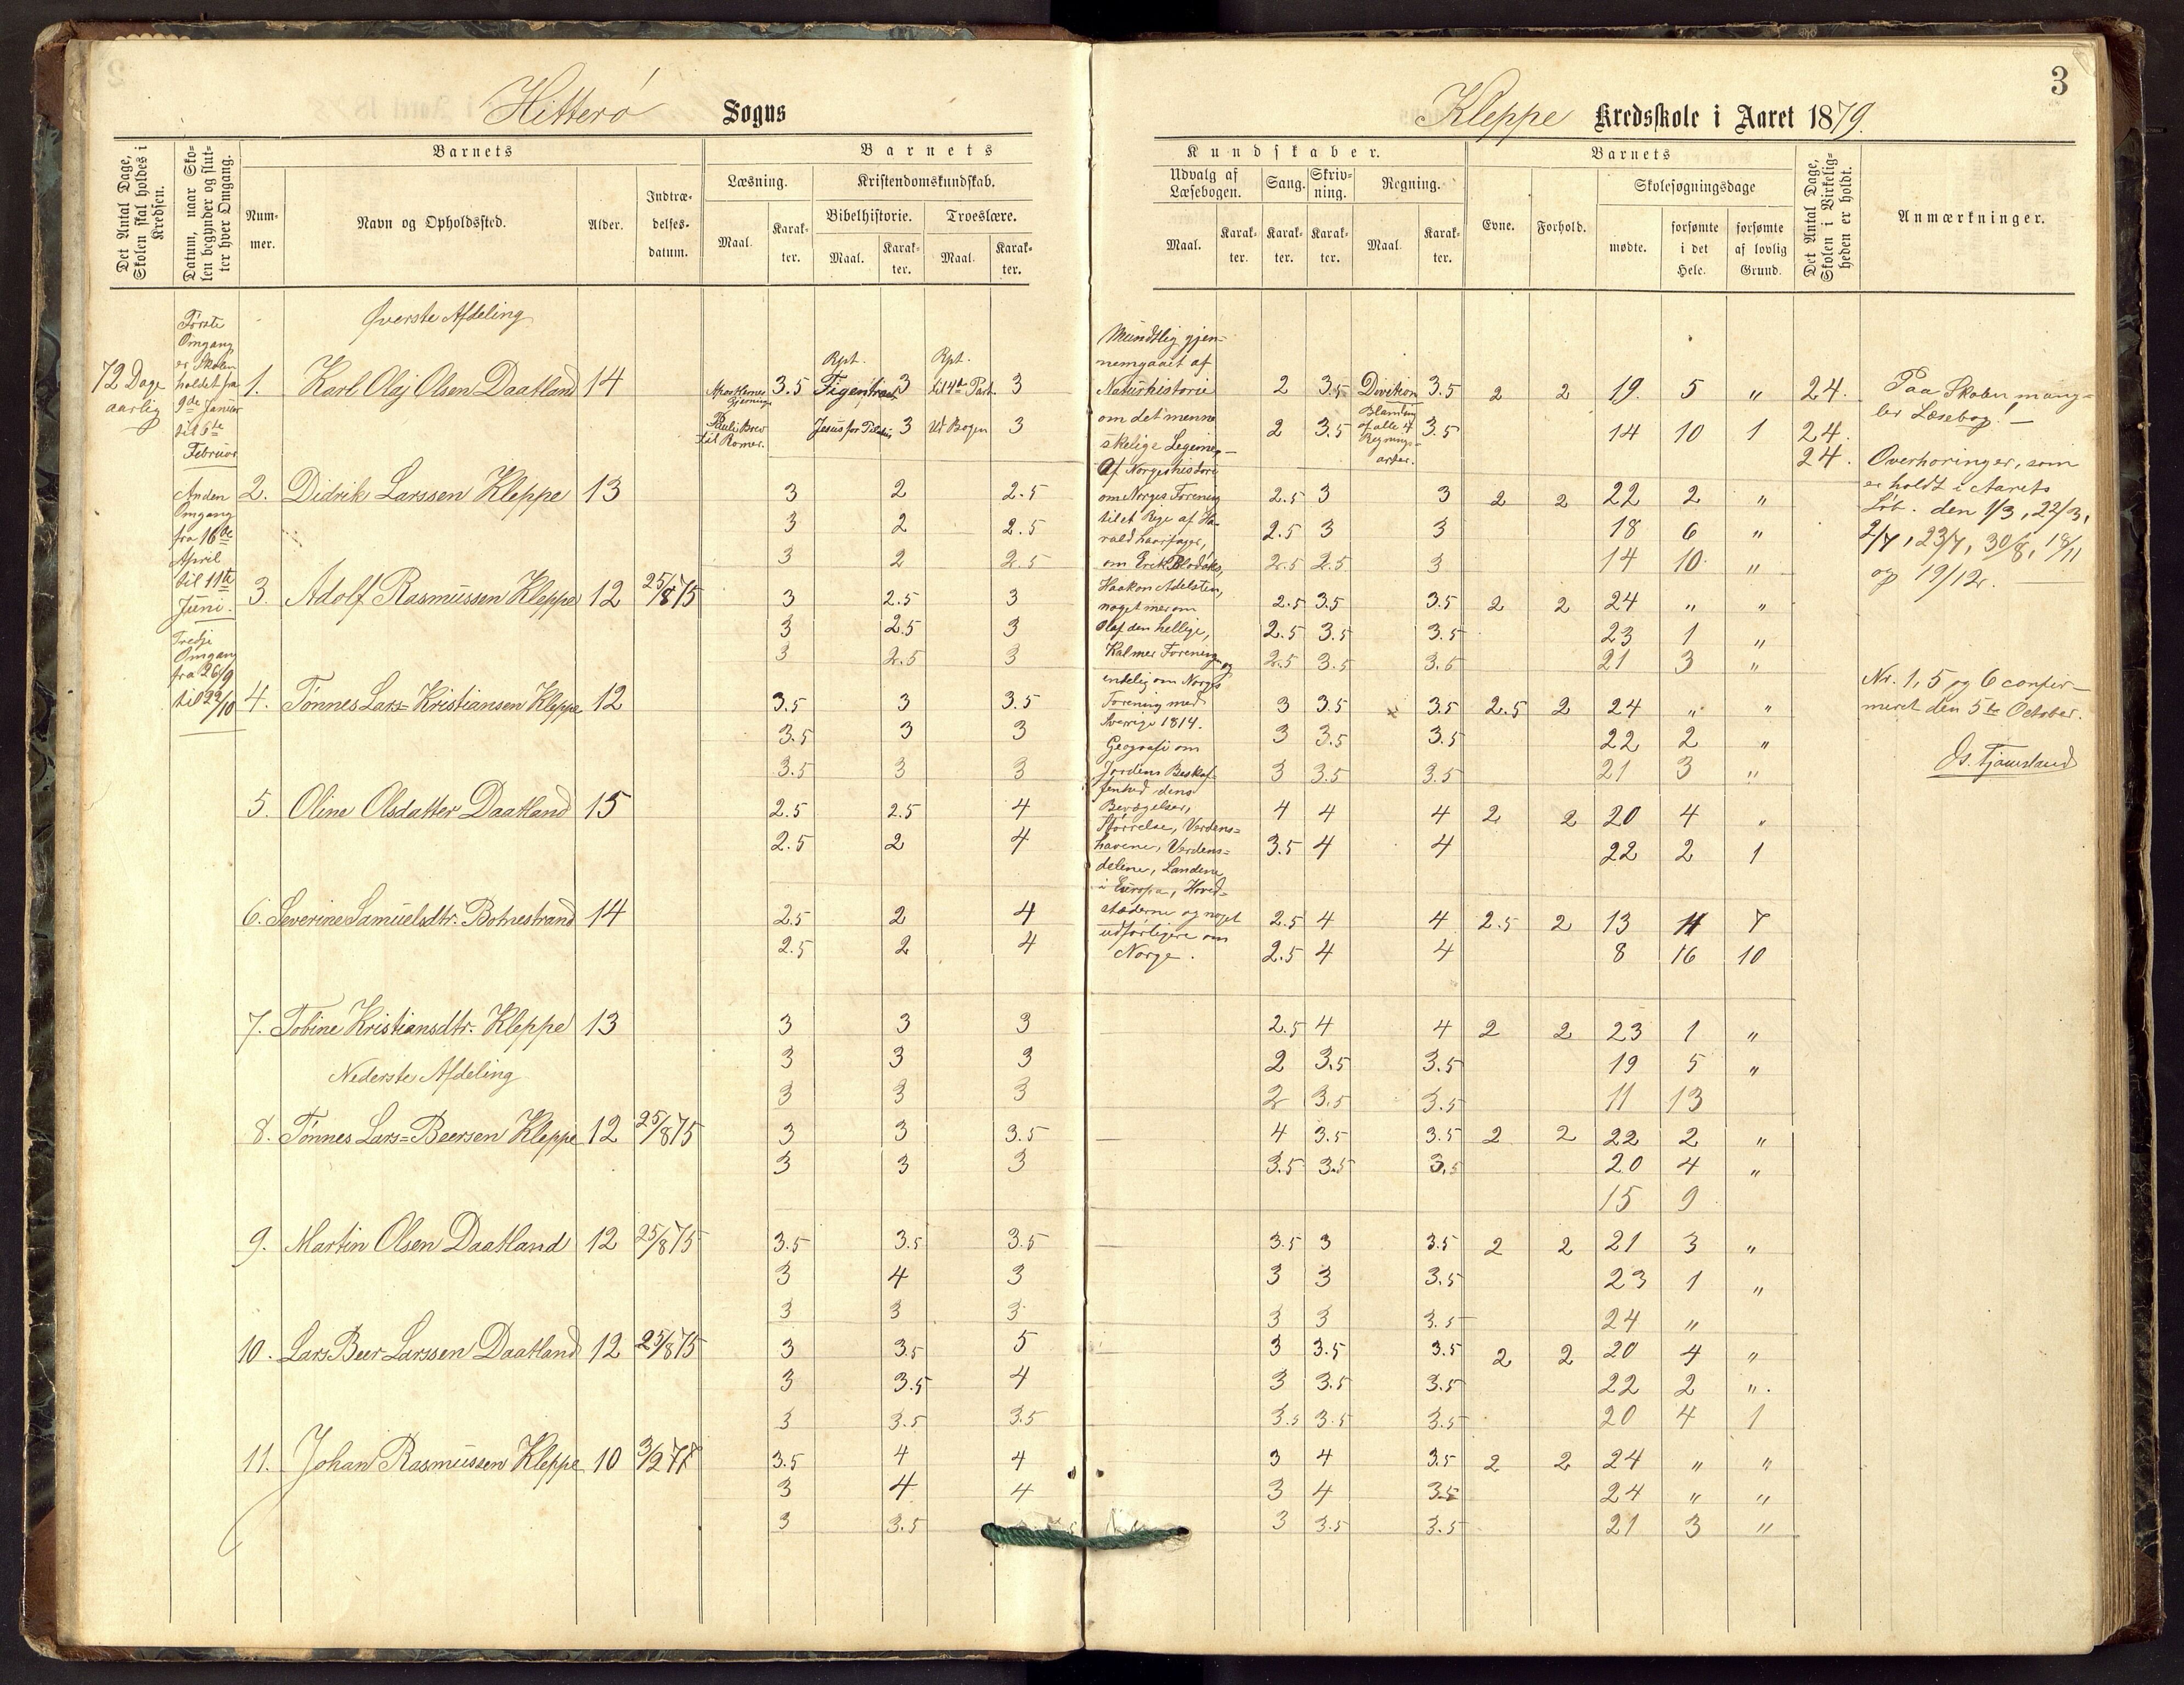 Hitterø Sogns
Kleppe Kredsskole i Aaret 1879.
3
Det Antal Dage, Skolen skal holdes i Kredsen.
Datum, naar Skolen begynder og slutter hver Omgang.
Barnets
Nummer.
Navn og Opholdssted.
Alder.
Indtrædelses-datum.
Barnets
Læsning.
Maal.
Karakter.
Kristendomskundskab.
Bibelhistorie.
Maal.
Karakter.
Troeslære.
Maal.
Karakter.
Kundskaber.
Udvalg af Læsebogen.
Maal.
Karakter.
Sang.
Karakter.
Skrivning.
Karakter.
Regning.
Maal.
Karakter.
Barnets
Evne.
Forhold.
Skolesøgningsdage
mødte.
forsømte i det Hele.
forsømte af lovlig Grund.
Det Antal Dage, Skolen i Virkeligheden er holdt.
Anmærkninger.
72 Dage
aarlig
Første
Omgang
er Skolen
holdet fra
9de Januar
til 6te
Februar
Anden
Omgang
fra 16de
April
til 11te
Juni.
Tredje
Omgang
fra 26/9
til 22/10
Øverste Afdeling
1. Karl Olaj Olsen Daatland 14 Apostlernes Gjerninger 3.5 Rpt. Figentræet 3 Rpt. til 4de Part. 3 2 3.5 Division 3.5 2 2 19. 5 " 24.
Pauli Brev til Romer. Jesus for Pilatus 3 Ud Bogen 3 2 3.5 Blanding af alle 4 Regningsarter. 3.5 14 10 1 24.
24.
2. Didrik Larssen Kleppe 13 3 2 2.5 2.5 3 3 2 2 22 2 "
3 2 2.5 2.5 3 3 18 6 "
3 2 2.5 2.5 2.5 3 14 10 "
3. Adolf Rasmussen Kleppe 12 25/8 75 3 2.5 3 2.5 3.5 3.5 2 2 24 " "
3 2.5 3 2.5 3.5 3.5 23 1 "
3 2.5 3 2.5 3.5 3.5 21 3 "
4. Tønnes Lars-Kristiansen Kleppe 12 3.5 3 3.5 3 3.5 3.5 2.5 2 24 " "
3.5 3 3 3 3.5 3.5 22 2 "
3.5 3 3 3 3.5 3.5 21 3 "
5. Oline Olsdatter Daatland 15 2.5 2.5 4 4 4 4 2 2 20 4 "
2.5 2 4 3.5 4 4 22 2 1
6. Severine Samuelsdtr. Botnestrand 14 2.5 2 4 2.5 4 4 2.5 2 13 11 7
2.5 2 4 2.5 4 4 8 16 10
7. Tobine Kristiansdtr. Kleppe 13 3 3 3 2.5 4 4 2 2 23 1 "
3 3 3 2 3.5 3.5 19 5 "
3 3 3 2 3.5 3.5 11 13
Nederste Afdeling
8. Tønnes Lars=Beersen Kleppe 12 25/8 75 3 3 3.5 4 3.5 3.5 2 2 22 2 "
3 3 3 3.5 3.5 3.5 20 4 "
15 9
9. Martin Olsen Daatland 12 25/8 75 3.5 3.5 3.5 3.5 3 3.5 2 2 21 3 "
3 4 3 3 3 3.5 23 1 "
3 3 3 3 3 3.5 24 "
10. Lars Beer Larssen Daatland 12 25/8 75 3 3.5 5 3 3.5 3.5 2 2 20 4 "
3 3.5 4 3 3.5 3.5 22 2 "
3 3.5 3.5 3.5 3.5 3.5 20 4 1
11. Johan Rasmussen Kleppe 10 3/2 77 3.5 4 4 3 4 3.5 2 2 24 " "
3 4 4 3 4 3.5 24 " "
3 3.5 3 3.5 3.5 21 3 "
Mundtlig gjen-
nemgaaet af
Naturhistorie
om det menne
skelige Legeme, —
Af Norgeshistorie
om Norges Forening
til et Rige af Ha-
rald haarfager,
om Erik Blodøks,
Haakon Adelsten,
noget mer om
Olaf den hellige,
Kalmer Forening og
endelig om Norges
Forening med
Sverige 1814.
Geografi om
Jordens Beskaf-
fenhed, dens
Bevægelser,
Størrelse, Verdens=
havene, Verdens=
delene, Landene
i Europa, Hoved=
stæderne og noget
udførligere om
Norge.
Paa Skolen mang=
ler Læsebog! —
Overhøringer, som
er holdt i Aarets
Løb. den 1/3, 22/3,
2/7, 23/7, 30/8, 18/11
og 19/12. —
Nr. 1, 5 og 6 confir-
meret den 5te October.
Tjamsland